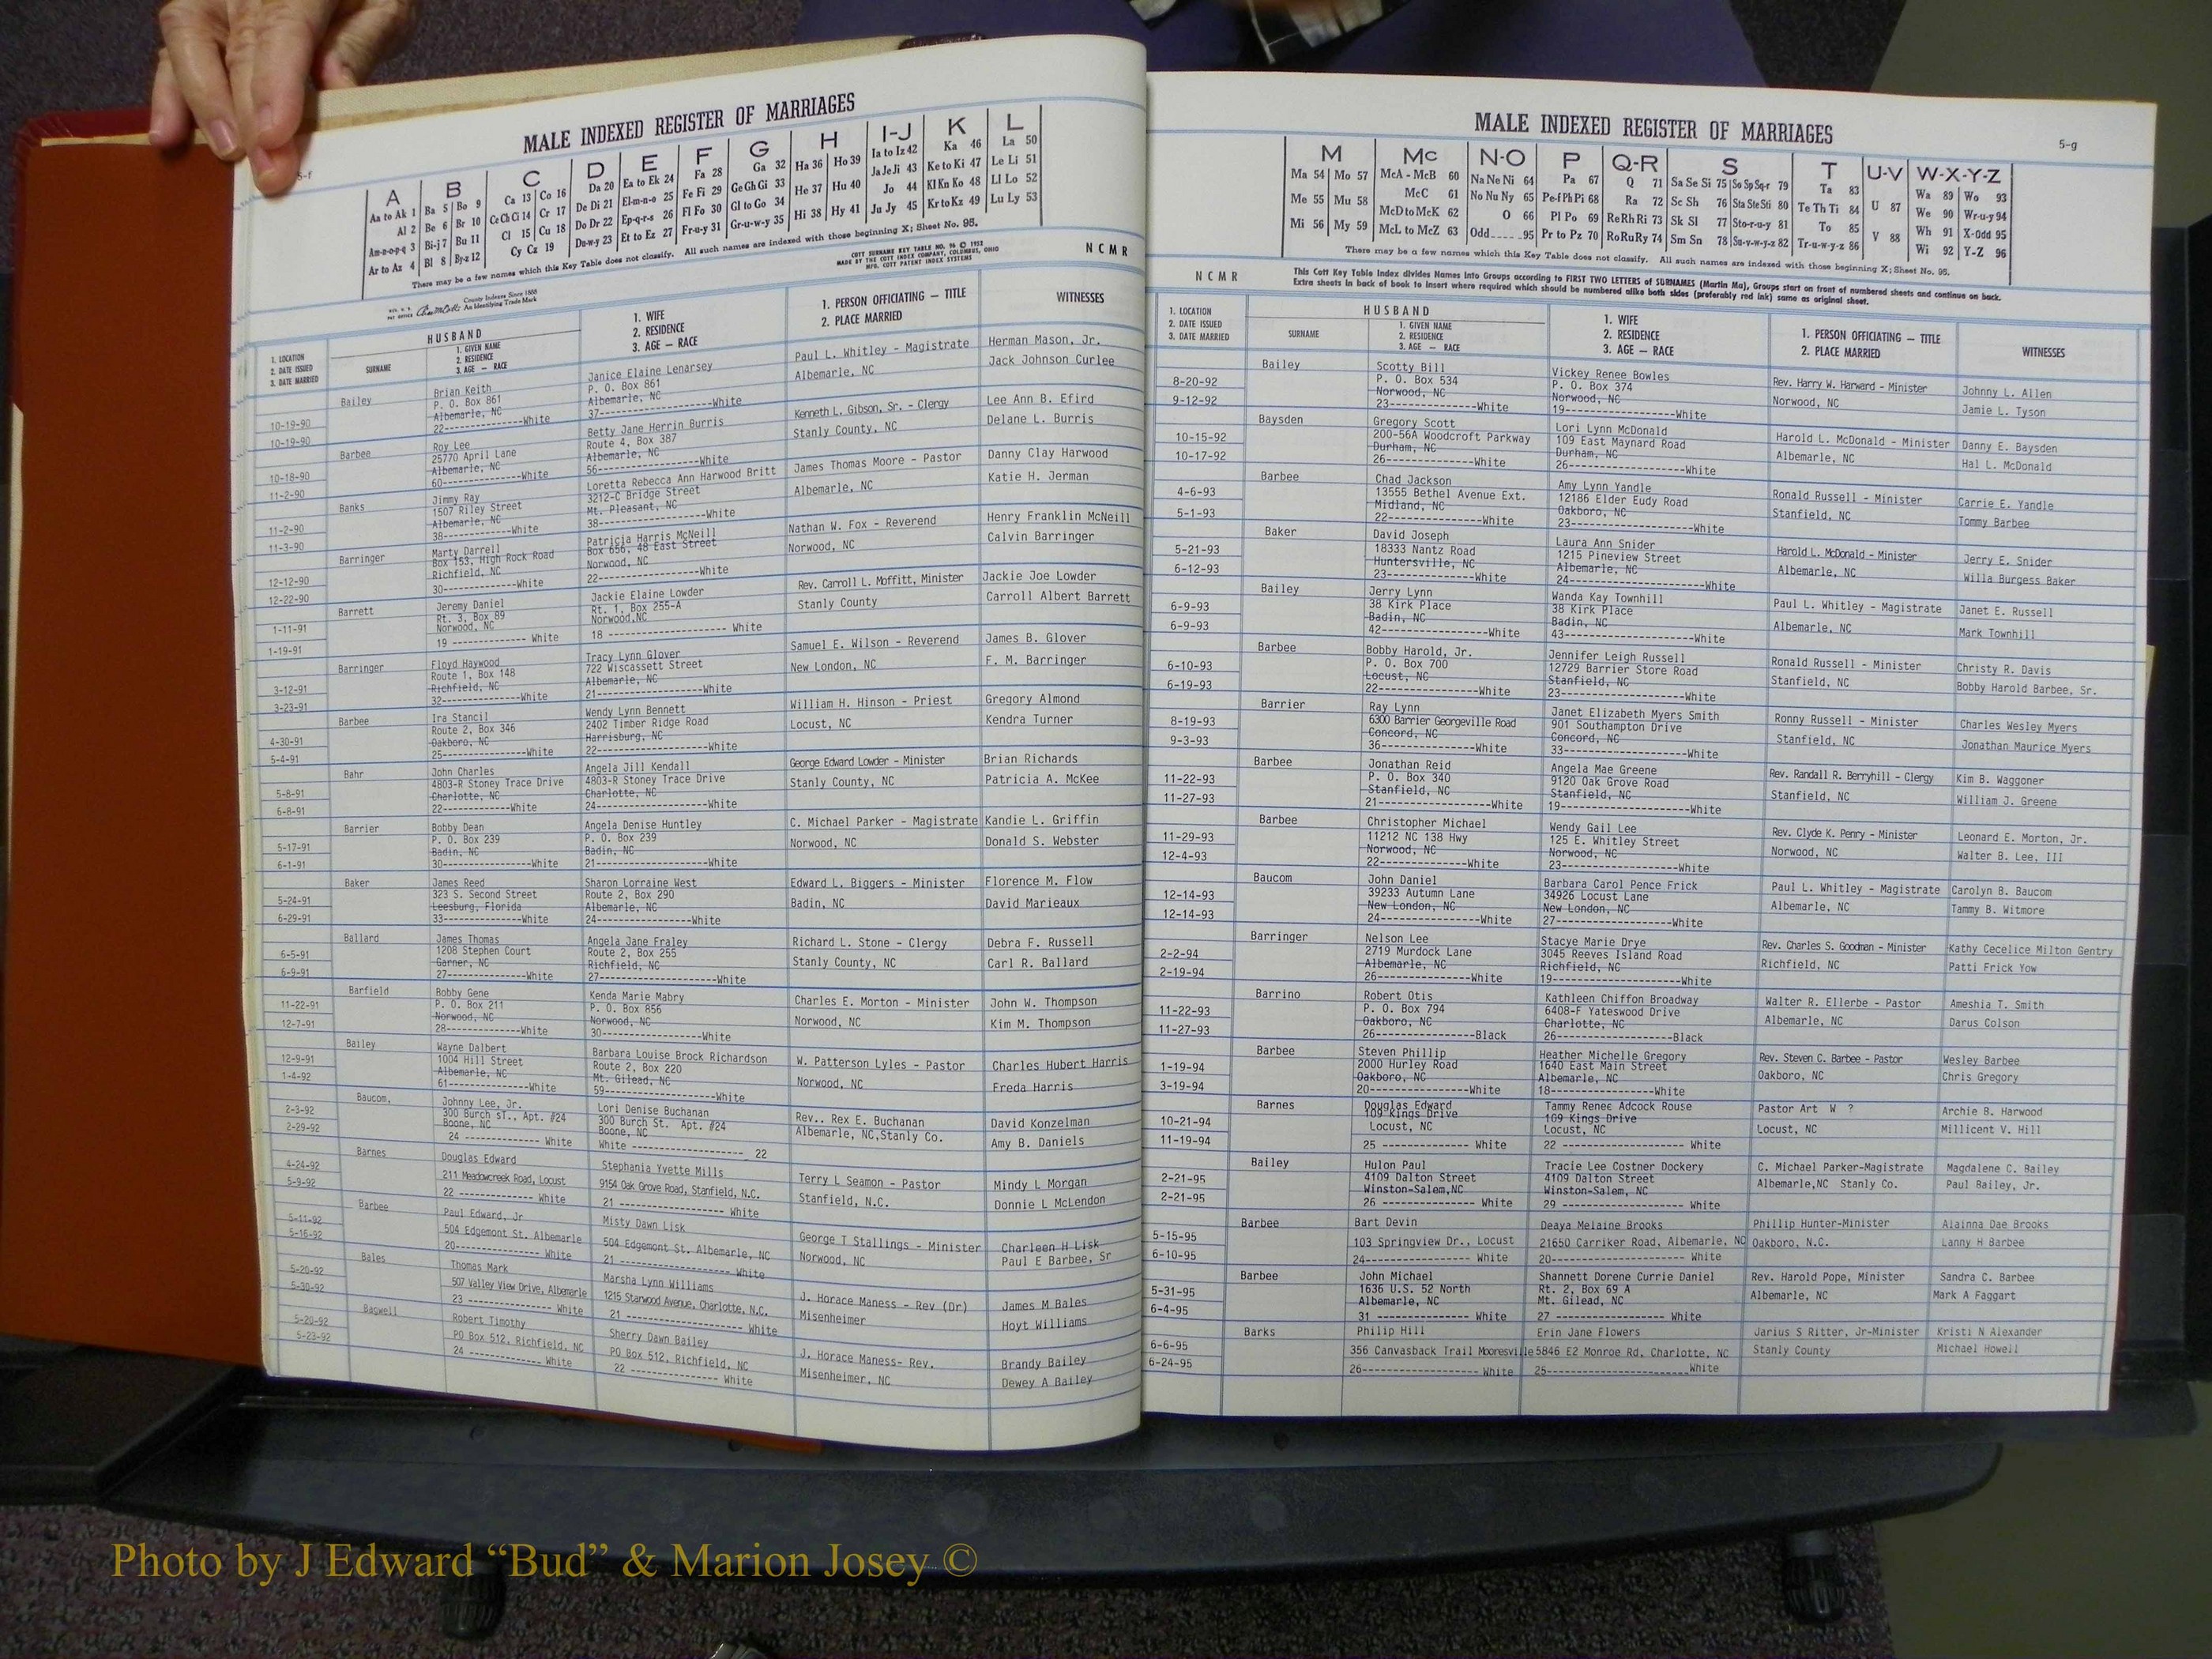 5-f
MALE INDEXED REGISTER OF MARRIAGES
A B C D E F G H I-J K L
Aa to Ak 1 Ba 5 Bo 9 Ca 13 Co 16 Da 20 Ea to Ek 24 Fa 28 Ga 32 Ha 36 Ho 39 Ia to Iz 42 Ka 46 La 50
Al 2 Be 6 Br 10 Ce Ch Ci 14 Cr 17 De Di 21 El-m-n-o 25 Fe Fi 29 Ge Gh Gi 33 He 37 Hu 40 Ja Je Ji 43 Ke to Ki 47 Le Li 51
Am-n-o-p-q 3 Bi-j 7 Bu 11 Cl 15 Cu 18 Do Dr 22 Ep-q-r-s 26 Fl Fo 30 Gl to Go 34 Hi 38 Hy 41 Jo 44 Kl Kn Ko 48 Ll Lo 52
Ar to Az 4 Bl 8 By-z 12 Cy Cz 19 Du-w-y 23 Et to Ez 27 Fr-u-y 31 Gr-u-w-y 35 Ju Jy 45 Kr to Kz 49 Lu Ly 53
There may be a few names which this Key Table does not classify. All such names are indexed with those beginning X; Sheet No. 95.
County Indexes Since 1888
An Identifying Trade Mark
COTT SURNAME KEY TABLE NO. 96 © 1953
MADE BY THE COTT INDEX COMPANY, COLUMBUS, OHIO
MFG. COTT PATENT INDEX SYSTEMS
NCMR
1. LOCATION
2. DATE ISSUED
3. DATE MARRIED
HUSBAND
SURNAME
1. GIVEN NAME
2. RESIDENCE
3. AGE — RACE
1. WIFE
2. RESIDENCE
3. AGE — RACE
1. PERSON OFFICIATING — TITLE
2. PLACE MARRIED
WITNESSES
Bailey Brian Keith Janice Elaine Lenarsey Paul L. Whitley - Magistrate Herman Mason, Jr.
P. O. Box 861 P. O. Box 861 Albemarle, NC Jack Johnson Curlee
10-19-90 Albemarle, NC Albemarle, NC
10-19-90 22--------------White 37--------------White
Barbee Roy Lee Betty Jane Herrin Burris Kenneth L. Gibson, Sr. - Clergy Lee Ann B. Efird
25770 April Lane Route 4, Box 387 Stanly County, NC Delane L. Burris
10-18-90 Albemarle, NC Albemarle, NC
11-2-90 60--------------White 56--------------White
Banks Jimmy Ray Loretta Rebecca Ann Harwood Britt James Thomas Moore - Pastor Danny Clay Harwood
1507 Riley Street 3212-C Bridge Street Albemarle, NC Katie H. Jerman
11-2-90 Albemarle, NC Mt. Pleasant, NC
11-3-90 38--------------White 38--------------White
Barringer Marty Darrell Patricia Harris McNeill Nathan W. Fox - Reverend Henry Franklin McNeill
Box 153, High Rock Road Box 656, 48 East Street Norwood, NC Calvin Barringer
12-12-90 Richfield, NC Norwood, NC
12-22-90 30--------------White 22--------------White
Barrett Jeremy Daniel Jackie Elaine Lowder Rev. Carroll L. Moffitt, Minister Jackie Joe Lowder
Rt. 3, Box 89 Rt. 1, Box 255-A Stanly County Carroll Albert Barrett
1-11-91 Norwood, NC Norwood,NC
1-19-91 19 ------------- White 18 ------------- White
Barringer Floyd Haywood Tracy Lynn Glover Samuel E. Wilson - Reverend James B. Glover
Route 1, Box 148 722 Wiscassett Street New London, NC F. M. Barringer
3-12-91 Richfield, NC Albemarle, NC
3-23-91 32--------------White 21--------------White
Barbee Ira Stancil Wendy Lynn Bennett William H. Hinson - Priest Gregory Almond
Route 2, Box 346 2402 Timber Ridge Road Locust, NC Kendra Turner
4-30-91 Oakboro, NC Harrisburg, NC
5-4-91 25--------------White 22--------------White
Bahr John Charles Angela Jill Kendall George Edward Lowder - Minister Brian Richards
4803-R Stoney Trace Drive 4803-R Stoney Trace Drive Stanly County, NC Patricia A. McKee
5-8-91 Charlotte, NC Charlotte, NC
6-8-91 22--------------White 24--------------White
Barrier Bobby Dean Angela Denise Huntley C. Michael Parker - Magistrate Kandie L. Griffin
P. O. Box 239 P. O. Box 239 Norwood, NC Donald S. Webster
5-17-91 Badin, NC Badin, NC
6-1-91 30--------------White 21--------------White
Baker James Reed Sharon Lorraine West Edward L. Biggers - Minister Florence M. Flow
323 S. Second Street Route 2, Box 290 Badin, NC David Marieaux
5-24-91 Leesburg, Florida Albemarle, NC
6-29-91 33--------------White 24--------------White
Ballard James Thomas Angela Jane Fraley Richard L. Stone - Clergy Debra F. Russell
1208 Stephen Court Route 2, Box 255 Stanly County, NC Carl R. Ballard
6-5-91 Garner, NC Richfield, NC
6-9-91 27--------------White 27--------------White
Barfield Bobby Gene Kenda Marie Mabry Charles E. Morton - Minister John W. Thompson
P. O. Box 211 P. O. Box 856 Norwood, NC Kim M. Thompson
11-22-91 Norwood, NC Norwood, NC
12-7-91 28--------------White 30--------------White
Bailey Wayne Dalbert Barbara Louise Brock Richardson W. Patterson Lyles - Pastor Charles Hubert Harris
1004 Hill Street Route 2, Box 220 Norwood, NC Freda Harris
12-9-91 Albemarle, NC Mt. Gilead, NC
1-4-92 61--------------White 59--------------White
Baucom, Johnny Lee, Jr. Lori Denise Buchanan Rev.. Rex E. Buchanan David Konzelman
300 Burch sT., Apt. #24 300 Burch St. Apt. #24 Albemarle, NC,Stanly Co. Amy B. Daniels
2-3-92 Boone, NC Boone, NC
2-29-92 24 ------------- White White ------------- 22
Barnes Douglas Edward Stephania Yvette Mills Terry L Seamon - Pastor Mindy L Morgan
4-24-92 211 Meadowcreek Road, Locust 9154 Oak Grove Road, Stanfield, N.C. Stanfield, N.C. Donnie L McLendon
5-9-92 22 ------------- White 21 ------------- White
Barbee Paul Edward, Jr Misty Dawn Lisk George T Stallings - Minister Charleen H Lisk
5-11-92 504 Edgemont St. Albemarle 504 Edgemont St. Albemarle, NC Norwood, NC Paul E Barbee, Sr
5-16-92 20------------- White 21 ------------- White
Bales Thomas Mark Marsha Lynn Williams J. Horace Maness - Rev (Dr) James M Bales
5-20-92 507 Valley View Drive, Albemarle 1215 Starwood Avenue, Charlotte, N.C. Misenheimer Hoyt Williams
5-30-92 23 ------------- White 21 ------------- White
Baswell Robert Timothy Sherry Dawn Bailey J. Horace Maness- Rev. Brandy Bailey
5-20-92 PO Box 512, Richfield, NC PO Box 512, Richfield, NC Misenheimer, NC Dewey A Bailey
5-23-92 24 ------------- White 22 ------------- White
5-g
MALE INDEXED REGISTER OF MARRIAGES
M Mc N-O P Q-R S T U-V W-X-Y-Z
Ma 54 Mo 57 McA - McB 60 Na Ne Ni 64 Pa 67 Q 71 Sa Se Si 75 So Sp Sq-r 79 Ta 83 U 87 Wa 89 Wo 93
Me 55 Mu 58 McC 61 No Nu Ny 65 Pe-f Ph Pi 68 Ra 72 Sc Sh 76 Sta Ste Sti 80 Te Th Ti 84 V 88 We 90 Wr-u-y 94
Mi 56 My 59 McD to McK 62 O 66 Pl Po 69 Re Rh Ri 73 Sk Sl 77 Sto-r-u-y 81 To 85 Wh 91 X-Odd 95
McL to McZ 63 Odd 95 Pr to Pz 70 Ro Ru Ry 74 Sm Sn 78 Su-v-w-y-z 82 Tr-u-w-y-z 86 Wi 92 Y-Z 96
There may be a few names which this Key Table does not classify. All such names are indexed with those beginning X; Sheet No. 95.
NCMR
This Cott Key Table Index divides Names into Groups according to FIRST TWO LETTERS of SURNAMES (Martin Ma), Groups start on front of numbered sheets and continue on back.
Extra sheets in back of book to insert where required which should be numbered alike both sides (preferably red ink) same as original sheet.
1. LOCATION
2. DATE ISSUED
3. DATE MARRIED
HUSBAND
SURNAME
1. GIVEN NAME
2. RESIDENCE
3. AGE — RACE
1. WIFE
2. RESIDENCE
3. AGE — RACE
1. PERSON OFFICIATING — TITLE
2. PLACE MARRIED
WITNESSES
Bailey Scotty Bill Vickey Renee Bowles Rev. Harry W. Harward - Minister Johnny L. Allen
8-20-92 P. O. Box 534 P. O. Box 374 Norwood, NC Jamie L. Tyson
9-12-92 Norwood, NC Norwood, NC
23--------------White 19--------------White
Baysden Gregory Scott Lori Lynn McDonald Harold L. McDonald - Minister Danny E. Baysden
10-15-92 200-56A Woodcroft Parkway 109 East Maynard Road Albemarle, NC Hal L. McDonald
10-17-92 Durham, NC Durham, NC
26--------------White 26--------------White
Barbee Chad Jackson Amy Lynn Yandle Ronald Russell - Minister Carrie E. Yandle
4-6-93 13555 Bethel Avenue Ext. 12186 Elder Eudy Road Stanfield, NC Tommy Barbee
5-1-93 Midland, NC Oakboro, NC
22--------------White 23--------------White
Baker David Joseph Laura Ann Snider Harold L. McDonald - Minister Jerry E. Snider
5-21-93 18333 Nantz Road 1215 Pineview Street Albemarle, NC Willa Burgess Baker
6-12-93 Huntersville, NC Albemarle, NC
23--------------White 24--------------White
Bailey Jerry Lynn Wanda Kay Townhill Paul L. Whitley - Magistrate Janet E. Russell
6-9-93 38 Kirk Place 38 Kirk Place Albemarle, NC Mark Townhill
6-9-93 Badin, NC Badin, NC
42--------------White 43--------------White
Barbee Bobby Harold, Jr. Jennifer Leigh Russell Ronald Russell - Minister Christy R. Davis
6-10-93 P. O. Box 700 12729 Barrier Store Road Stanfield, NC Bobby Harold Barbee, Sr.
6-19-93 Locust, NC Stanfield, NC
22--------------White 23--------------White
Barrier Ray Lynn Janet Elizabeth Myers Smith Ronny Russell - Minister Charles Wesley Myers
8-19-93 6300 Barrier Georgeville Road 901 Southampton Drive Stanfield, NC Jonathan Maurice Myers
9-3-93 Concord, NC Concord, NC
36--------------White 33--------------White
Barbee Jonathan Reid Angela Mae Greene Rev. Randall R. Berryhill - Clergy Kim B. Waggoner
11-22-93 P. O. Box 340 9120 Oak Grove Road Stanfield, NC William J. Greene
11-27-93 Stanfield, NC Stanfield, NC
21--------------White 19--------------White
Barbee Christopher Michael Wendy Gail Lee Rev. Clyde K. Penry - Minister Leonard E. Morton, Jr.
11-29-93 11212 NC 138 Hwy 125 E. Whitley Street Norwood, NC Walter B. Lee, III
12-4-93 Norwood, NC Norwood, NC
22--------------White 23--------------White
Baucom John Daniel Barbara Carol Pence Frick Paul L. Whitley - Magistrate Carolyn B. Baucom
12-14-93 39233 Autumn Lane 34926 Locust Lane Albemarle, NC Tammy B. Witmore
12-14-93 New London, NC New London, NC
24--------------White 27--------------White
Barringer Nelson Lee Stacye Marie Drye Rev. Charles S. Goodman - Minister Kathy Cecelice Milton Gentry
2-2-94 2719 Murdock Lane 3045 Reeves Island Road Richfield, NC Patti Frick Yow
2-19-94 Albemarle, NC Richfield, NC
26--------------White 19--------------White
Barrino Robert Otis Kathleen Chiffon Broadway Walter R. Ellerbe - Pastor Ameshia T. Smith
11-22-93 P. O. Box 794 6408-F Yateswood Drive Albemarle, NC Darus Colson
11-27-93 Oakboro, NC Charlotte, NC
26--------------Black 26--------------Black
Barbee Steven Phillip Heather Michelle Gregory Rev. Steven C. Barbee - Pastor Wesley Barbee
1-19-94 2000 Hurley Road 1640 East Main Street Oakboro, NC Chris Gregory
3-19-94 Oakboro, NC Albemarle, NC
20--------------White 18--------------White
Barnes Douglas Edward Tammy Renee Adcock Rouse Pastor Art W ? Archie B. Harwood
10-21-94 109 Kings Drive 109 Kings Drive Locust, NC Millicent V. Hill
11-19-94 Locust, NC Locust, NC
25 ------------- White 22 ------------- White
Bailey Hulon Paul Tracie Lee Costner Dockery C. Michael Parker-Magistrate Magdalene C. Bailey
2-21-95 4109 Dalton Street 4109 Dalton Street Albemarle,NC Stanly Co. Paul Bailey, Jr.
2-21-95 Winston-Salem,NC Winston-Salem, NC
26 ------------- White 29 ------------- White
Barbee Bart Devin Deaya Melaine Brooks Phillip Hunter-Minister Alainna Dae Brooks
5-15-95 103 Springview Dr., Locust 21650 Carriker Road, Albemarle, NC Oakboro, N.C. Lanny H Barbee
6-10-95 24------------- White 20------------- White
Barbee John Michael Shannett Dorene Currie Daniel Rev. Harold Pope, Minister Sandra C. Barbee
5-31-95 1636 U.S. 52 North Rt. 2, Box 69 A Albemarle, NC Mark A Faggart
6-4-95 Albemarle, NC Mt. Gilead, NC
31 ------------- White 27 ------------- White
Barks Philip Hill Erin Jane Flowers Jarius S Ritter, Jr-Minister Kristi N Alexander
6-6-95 356 Canvasback Trail Mooresville 5846 E2 Monroe Rd. Charlotte, NC Stanly County Michael Howell
6-24-95 26------------- White 25-------------White
Photo by J Edward “Bud” & Marion Josey ©